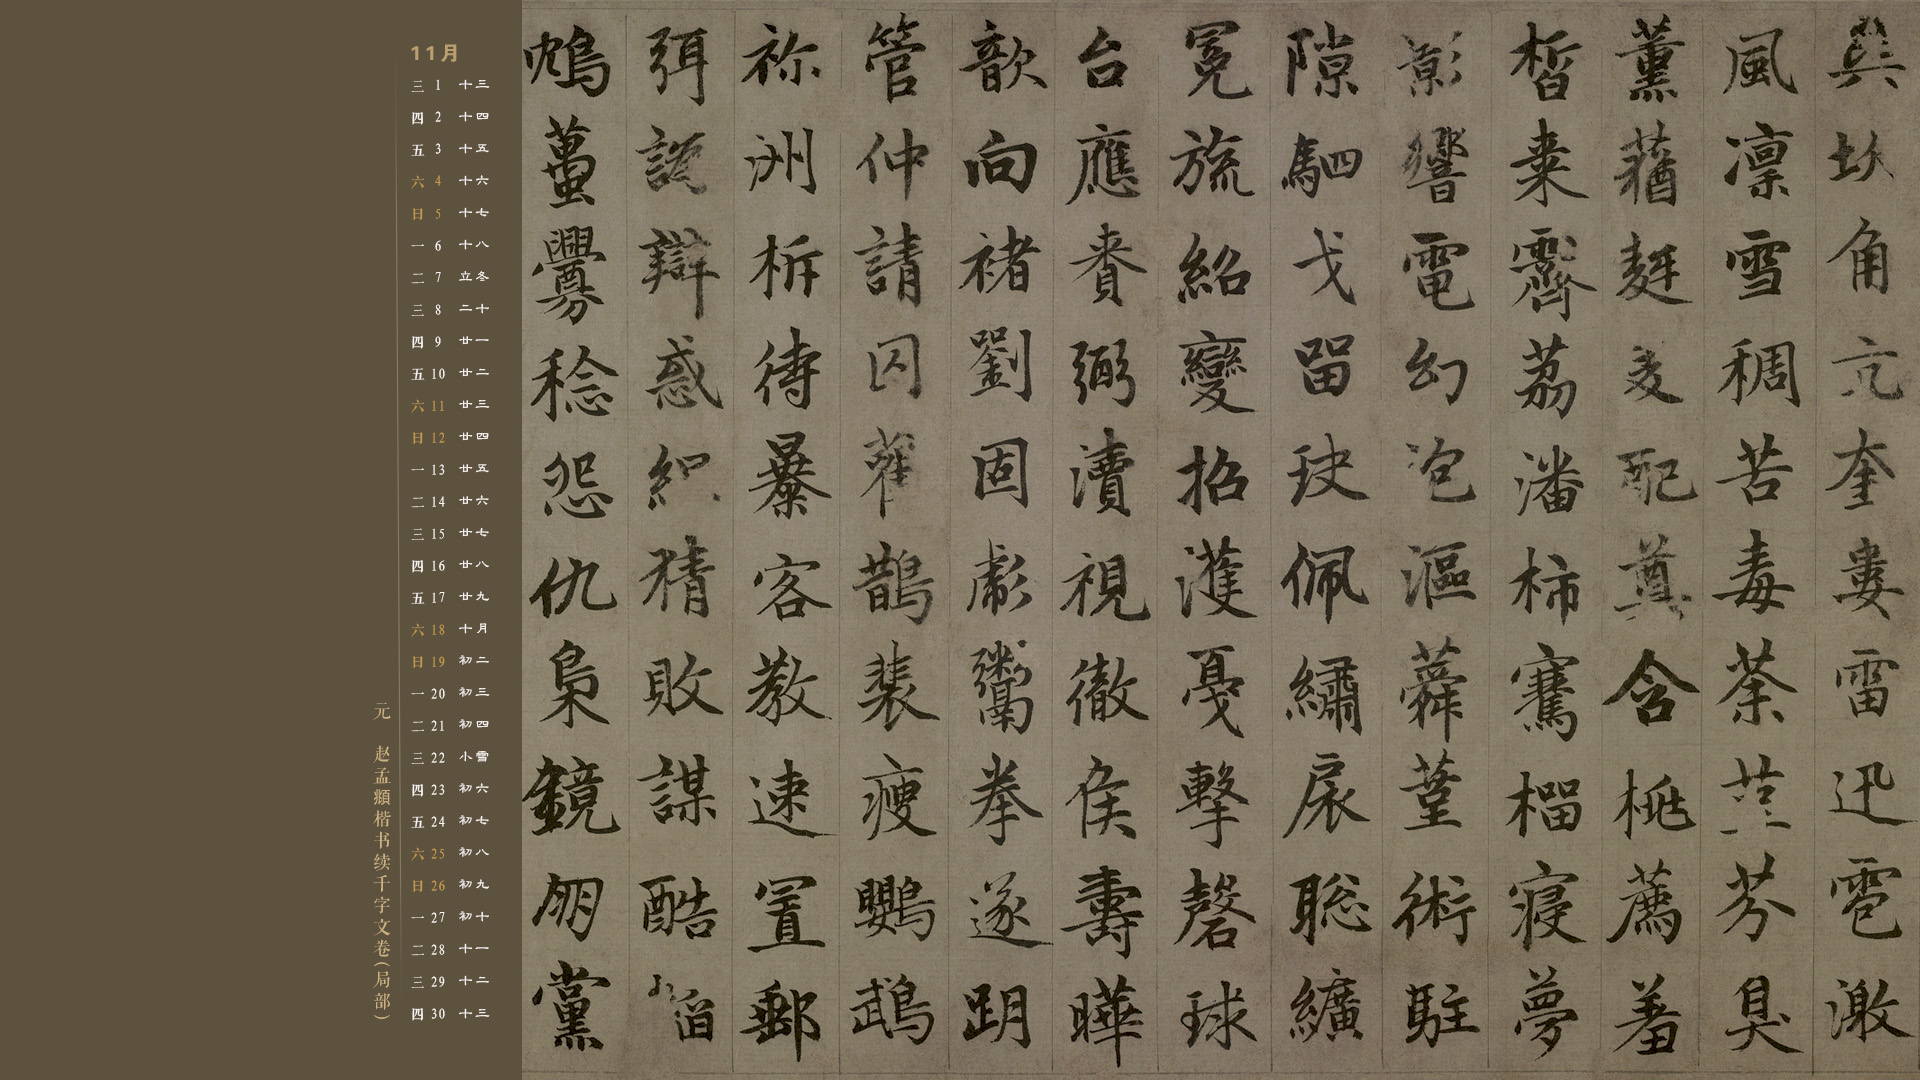 11月
三 1 十三
四 2 十四
五 3 十五
六 4 十六
日 5 十七
一 6 十八
二 7 立冬
三 8 二十
四 9 廿一
五 10 廿二
六 11 廿三
日 12 廿四
一 13 廿五
二 14 廿六
三 15 廿七
四 16 廿八
五 17 廿九
六 18 十月
日 19 初二
一 20 初三
二 21 初四
三 22 小雪
四 23 初六
五 24 初七
六 25 初八
日 26 初九
一 27 初十
二 28 十一
三 29 十二
四 30 十三
元 赵孟頫楷书续千字文卷(局部)
巽坎角亢奎婁雷迅雹激
風凛雪稠苦毒荼芬臭
薰蕕麰麦配奠含桃薦羞
皙棗霽荔潘柿騫榴寝夢
影響電幻泡漚蕣堇術駐
隙駟戈留玦佩繡扆聡纊
冕旒紹變招濩戛擊磬球
台應賚弼瀆視徹侯壽曄
歆向褚劉固彪鬻拳遂明
管仲請囚鵲裴瘦鸚鵡
祢洲析待暴客教速置郵
弭説辯惑織猜敗謀酷
鴆蠆釁稔怨仇梟鏡朋黨